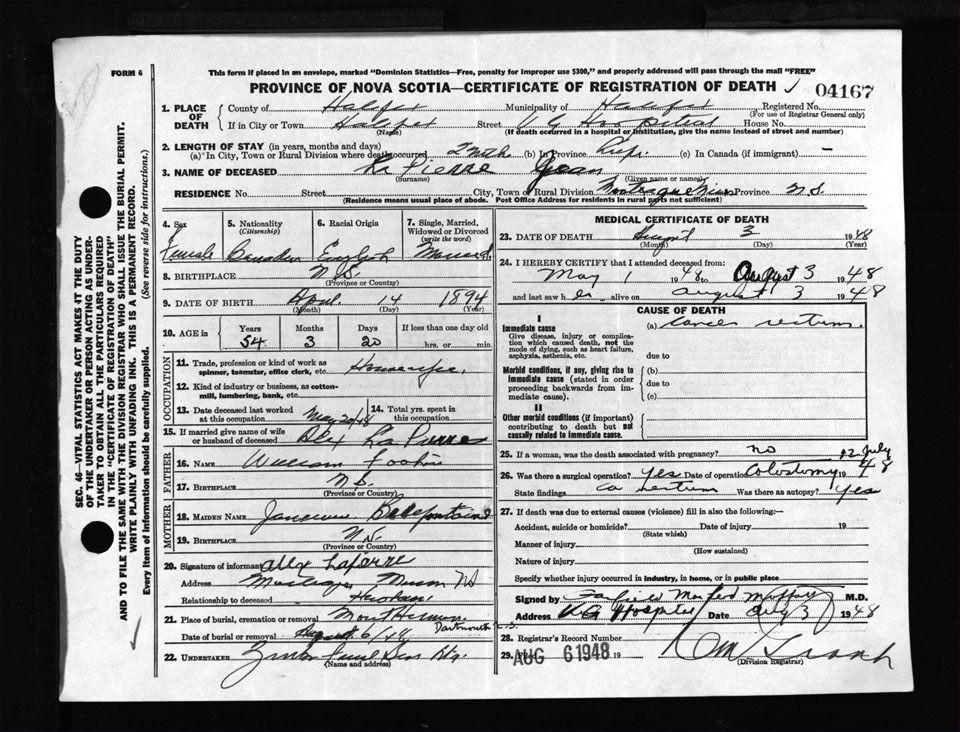 FORM 6
This form if placed in an envelope, marked "Dominion Statistics—Free, penalty for improper use $300," and properly addressed will pass through the mail "FREE"
PROVINCE OF NOVA SCOTIA—CERTIFICATE OF REGISTRATION OF DEATH 04167
1. PLACE OF DEATH County of Halifax Municipality of Halifax Registered No.
(For use of Registrar General only)
If in City or Town Halifax Street V G Hospital House No.
(Name) (If death occurred in a hospital or institution, give the name instead of street and number)
2. LENGTH OF STAY (in years, months and days)
(a) In City, Town or Rural Division where death occurred 2 mth (b) In Province Life (c) In Canada (if immigrant) —
3. NAME OF DECEASED La Pierre Jean
(Surname) (Given name or names)
RESIDENCE No. Street City, Town or Rural Division Province N.S.
(Residence means usual place of abode. Post Office Address for residents in rural parts not sufficient)
4. Sex Female
5. Nationality (Citizenship) Canadian
6. Racial Origin English
7. Single, Married, Widowed or Divorced (write the word) Married
8. BIRTHPLACE N.S.
(Province or Country)
9. DATE OF BIRTH April 14 1894
(Month) (Day) (Year)
10. AGE in Years Months Days If less than one day old
54 3 20 hrs. or min.
OCCUPATION
11. Trade, profession or kind of work as spinner, teamster, office clerk, etc. Housewife
12. Kind of industry or business, as cotton-mill, lumbering, bank, etc.
13. Date deceased last worked at this occupation May 20/48
14. Total yrs. spent in this occupation
15. If married give name of wife or husband of deceased Alex La Pierre
FATHER
16. NAME William
17. BIRTHPLACE N.S.
(Province or Country)
MOTHER
18. MAIDEN NAME
19. BIRTHPLACE
(Province or Country)
20. Signature of informant Alex Lapierre
Address
Relationship to deceased Husband
21. Place of burial, cremation or removal Mount Hermon Dartmouth
Date of burial or removal August 6/48
22. UNDERTAKER
(Name and address)
MEDICAL CERTIFICATE OF DEATH
23. DATE OF DEATH August 3 1948
(Month) (Day) (Year)
24. I HEREBY CERTIFY that I attended deceased from:
May 1 1948 to August 3 1948
and last saw h er alive on August 3 1948
CAUSE OF DEATH
I
Immediate cause (a) Cancer rectum.
Give disease, injury or complication which caused death, not the mode of dying, such as heart failure, asphyxia, asthenia, etc. due to
Morbid conditions, if any, giving rise to immediate cause (stated in order proceeding backwards from immediate cause). (b)
due to
(c)
II
Other morbid conditions (if important) contributing to death but not causally related to immediate cause.
25. If a woman, was the death associated with pregnancy? no
26. Was there a surgical operation? yes Date of operation Colostomy 12 July 1948
State findings Ca rectum Was there an autopsy? yes
27. If death was due to external causes (violence) fill in also the following:—
Accident, suicide or homicide? Date of injury 19
(State which)
Manner of injury
(How sustained)
Nature of injury
Specify whether injury occurred in industry, in home, or in public place
Signed by M.D.
Address V G Hospital Date Aug 3 1948
28. Registrar's Record Number
29. Filed AUG 6 1948 19
(Division Registrar)
SEC. 46—VITAL STATISTICS ACT MAKES IT THE DUTY
OF THE UNDERTAKER OR PERSON ACTING AS UNDER-
TAKER TO OBTAIN ALL THE PARTICULARS REQUIRED
IN THE "CERTIFICATE OF REGISTRATION OF DEATH"
AND TO FILE THE SAME WITH THE DIVISION REGISTRAR WHO SHALL ISSUE THE BURIAL PERMIT.
WRITE PLAINLY WITH UNFADING INK. THIS IS A PERMANENT RECORD.
Every item of information should be carefully supplied. (See reverse side for instructions.)